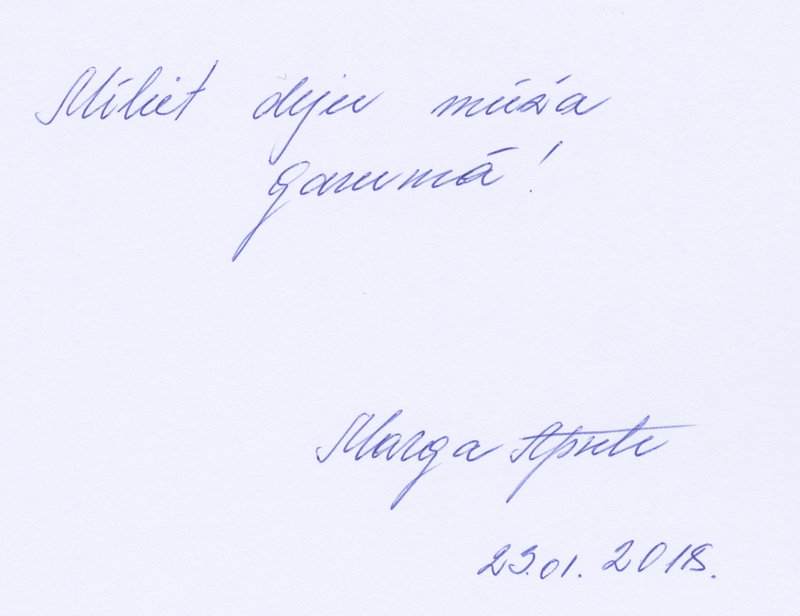 Mīliet deju mūža
garumā!
Marga Apsīte
23.01.2018.